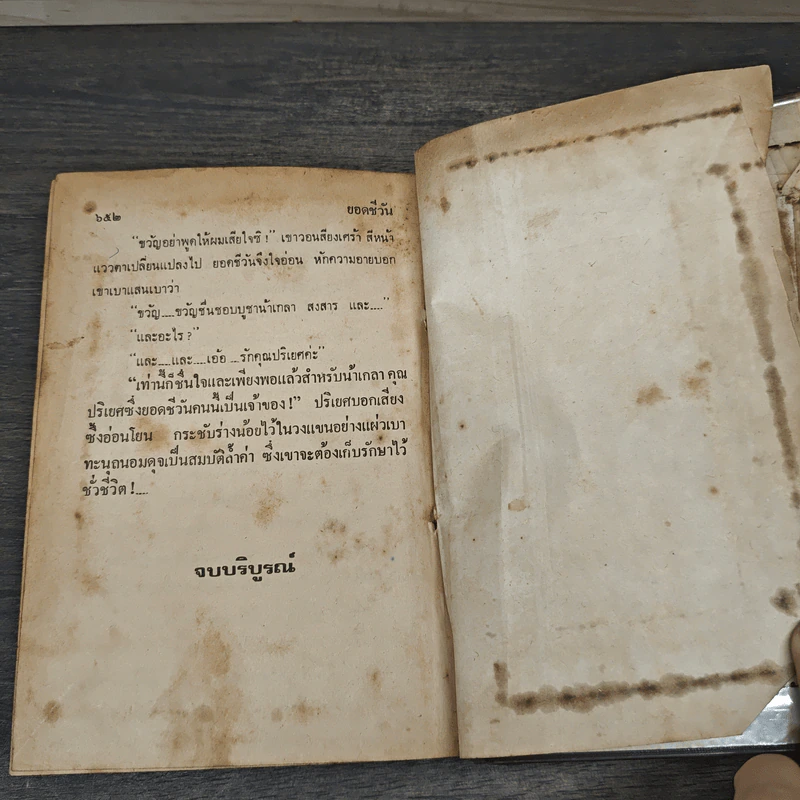 ๖๕๒ ยอดชีวัน
“ขวัญอย่าพูดให้ผมเสียใจซิ !” เขาวอนเสียงเศร้า สีหน้า
แววตาเปลี่ยนแปลงไป ยอดชีวันจึงใจอ่อน หักความอายบอก
เขาเบาแสนเบาว่า
“ขวัญ.....ขวัญชื่นชอบบูชาน้าเกลา สงสาร และ.....”
“และอะไร ?”
“และ.....และ.....เอ้อ ....รักคุณปริเยศค่ะ”
“เท่านี้ก็ชื่นใจและเพียงพอแล้วสำหรับน้าเกลา คุณ
ปริเยศซึ่งยอดชีวันคนนี้เป็นเจ้าของ !” ปริเยศบอกเสียง
ซึ้งอ่อนโยน กระชับร่างน้อยไว้ในวงแขนอย่างแผ่วเบา
ทะนุถนอมดุจเป็นสมบัติล้ำค่า ซึ่งเขาจะต้องเก็บรักษาไว้
ชั่วชีวิต !....
จบบริบูรณ์